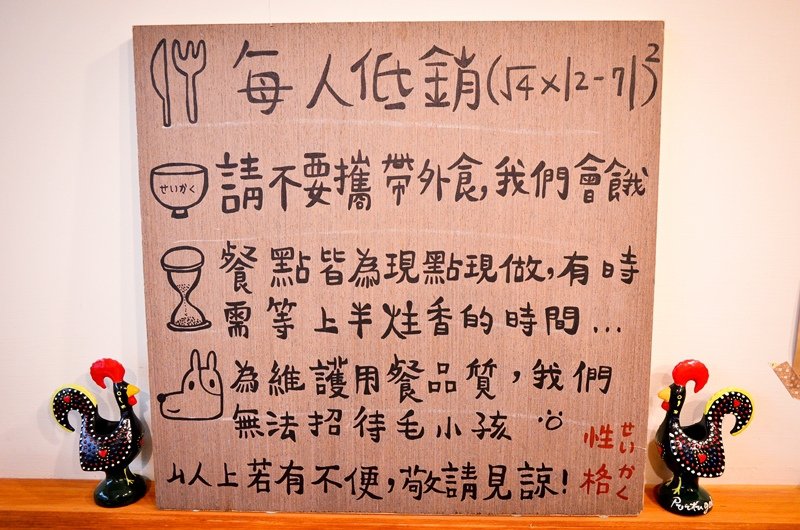 每人低銷(√4×|2-7|)²
せいかく
請不要攜帶外食,我們會餓
餐點皆為現點現做,有時
需等上半炷香的時間...
為維護用餐品質,我們
無法招待毛小孩
以上若有不便,敬請見諒!
性格
せいかく